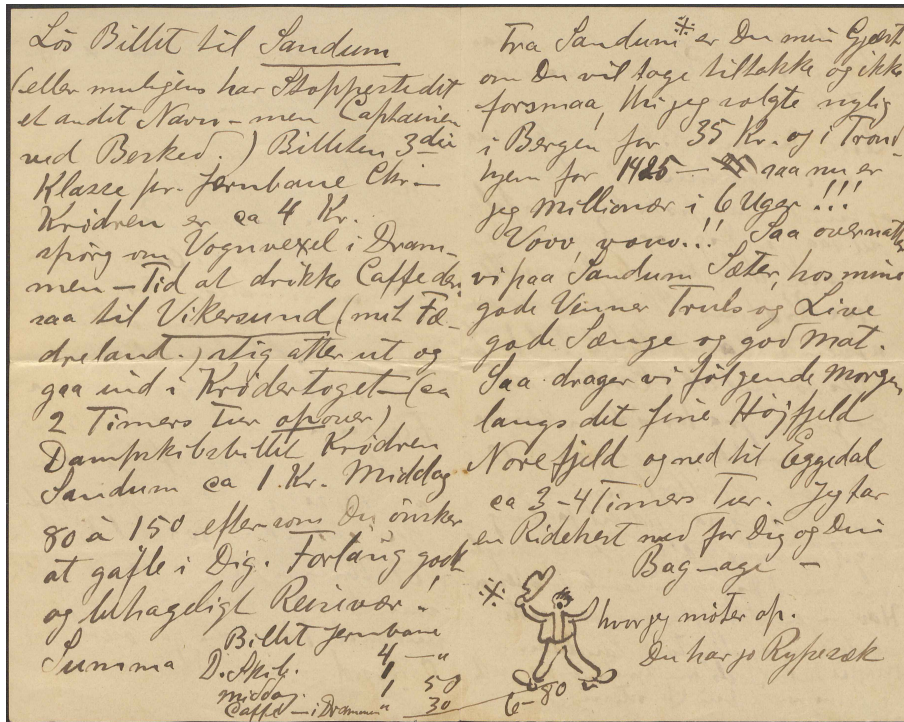 Lös Billet til Sandum
(eller muligens har Stoppestedet
et andet Navn – men Captainen
ved Besked.) Billetten 3die
Klasse pr. Jernbane Chr –
Krödren er ca 4 Kr.
spörg om Vognvexel i Dram-
men – Tid at drikke Caffe der,
saa til Vikersund (mit Fæ-
dreland.) stig atter ut og
gaa ind i Krödertoget – (ca
2 Timers Tur opover)
Dampskibsbillet Krödren
Sandum ca 1 Kr. Middag
80 à 150 eftersom Du önsker
at gafle i Dig. Forlang godt
og behageligt Reisevær!
Billet Jernbane
Summa 4 – "
D. Skib. 1
Middag 1 50
Caffe – i Drammen " 30
6 – 80
Fra Sandum ※ er Du min Gjæst
om Du vil tage tiltakke og ikke
forsmaa, thi jeg solgte nylig
i Bergen for 35 Kr. og i Trond-
hjem for 1425 – saa nu er
jeg Millionær i 6 Uger!!!
Vovv, vovv!!! Saa overnatter
vi paa Sandum Sæter, hos mine
gode Venner Truls og Live
gode Senge og god Mat.
Saa drager vi fölgende Morgen
langs det fine Höjfjeld
Norefjeld og ned til Eggedal
ca 3–4 Timers Tur. Jeg tar
en Ridehest med for Dig og Din
Bagage –
※ hvor jeg möter op.
Du har jo Rypesæk